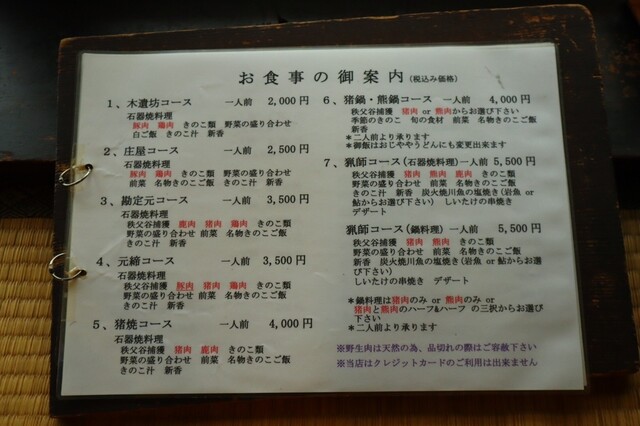 お食事の御案内(税込み価格)
1、木遺坊コース 一人前 2,000円
石器焼料理
豚肉 鶏肉 きのこ類 野菜の盛り合わせ
白ご飯 きのこ汁 新香
2、庄屋コース 一人前 2,500円
石器焼料理
豚肉 鶏肉 きのこ類 野菜の盛り合わせ
前菜 名物きのこご飯 きのこ汁 新香
3、勘定元コース 一人前 3,500円
石器焼料理
秩父谷捕獲 鹿肉 猪肉 鶏肉 きのこ類
野菜の盛り合わせ 前菜 名物きのこご飯
きのこ汁 新香
4、元締コース 一人前 3,500円
石器焼料理
秩父谷捕獲 豚肉 猪肉 鶏肉 きのこ類
野菜の盛り合わせ 前菜 名物きのこご飯
きのこ汁 新香
5、猪焼コース 一人前 4,000円
石器焼料理
秩父谷捕獲 猪肉 鹿肉 きのこ類
野菜の盛り合わせ 前菜 名物きのこご飯
きのこ汁 新香
6、猪鍋・熊鍋コース 一人前 4,000円
秩父谷捕獲 猪肉 or 熊肉からお選び下さい
季節のきのこ 旬の食材 前菜 名物きのこご飯
新香
*二人前より承ります
*御飯はおじややうどんにも変更出来ます
7、猟師コース(石器焼料理)一人前 5,500円
秩父谷捕獲 猪肉 熊肉 鹿肉 きのこ類
野菜の盛り合わせ 前菜 名物きのこご飯
きのこ汁 新香 炭火焼川魚の塩焼き(岩魚 or
鮎からお選び下さい) しいたけの串焼き
デザート
猟師コース(鍋料理)一人前 5,500円
秩父谷捕獲 猪肉 熊肉 きのこ類
野菜の盛り合わせ 前菜 名物きのこご飯
新香 炭火焼川魚の塩焼き(岩魚 or 鮎からお選
び下さい)
しいたけの串焼き デザート
*鍋料理は猪肉のみ or 熊肉のみ or
猪肉と熊肉のハーフ&ハーフ の三択からお選び
下さい
*二人前より承ります
※野生肉は天然の為、品切れの際はご容赦下さい
※当店はクレジットカードのご利用は出来ません